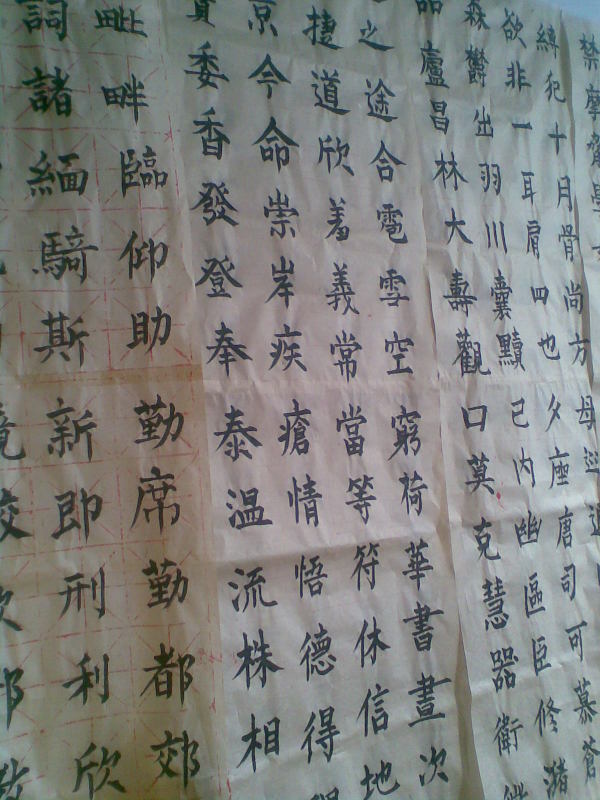 禁摩
縛犯十月骨尚方母
欲非一耳肩四也夕座唐司可慕蒼
森欝出羽川囊黷己内幽區臣修潴
品廬昌林大壽觀口莫克慧器衛
之途合雹雪空窮荷華書晝次
捷道欣羞義常當等符休信地
京今命崇岸疾瘡情悟德得
委香發登奉泰温流株相
毗畔臨仰助勤席勤都郊
詞諸緬騎斯新即刑利欣